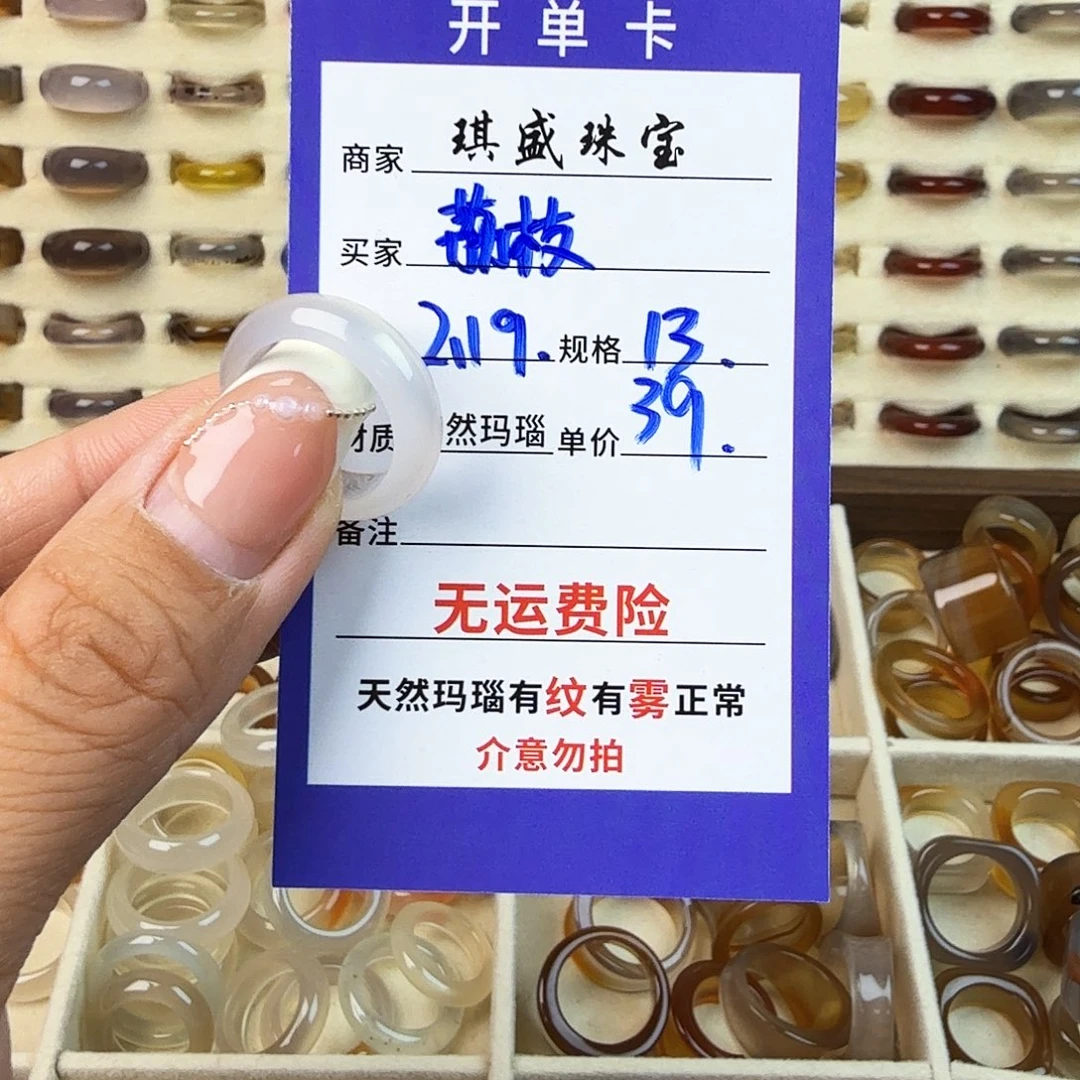 开单卡
商家 琪盛珠宝
买家 荔枝
2.19. 规格 13.
材质 然玛瑙 单价 39.
备注
无运费险
天然玛瑙有纹有雾正常
介意勿拍